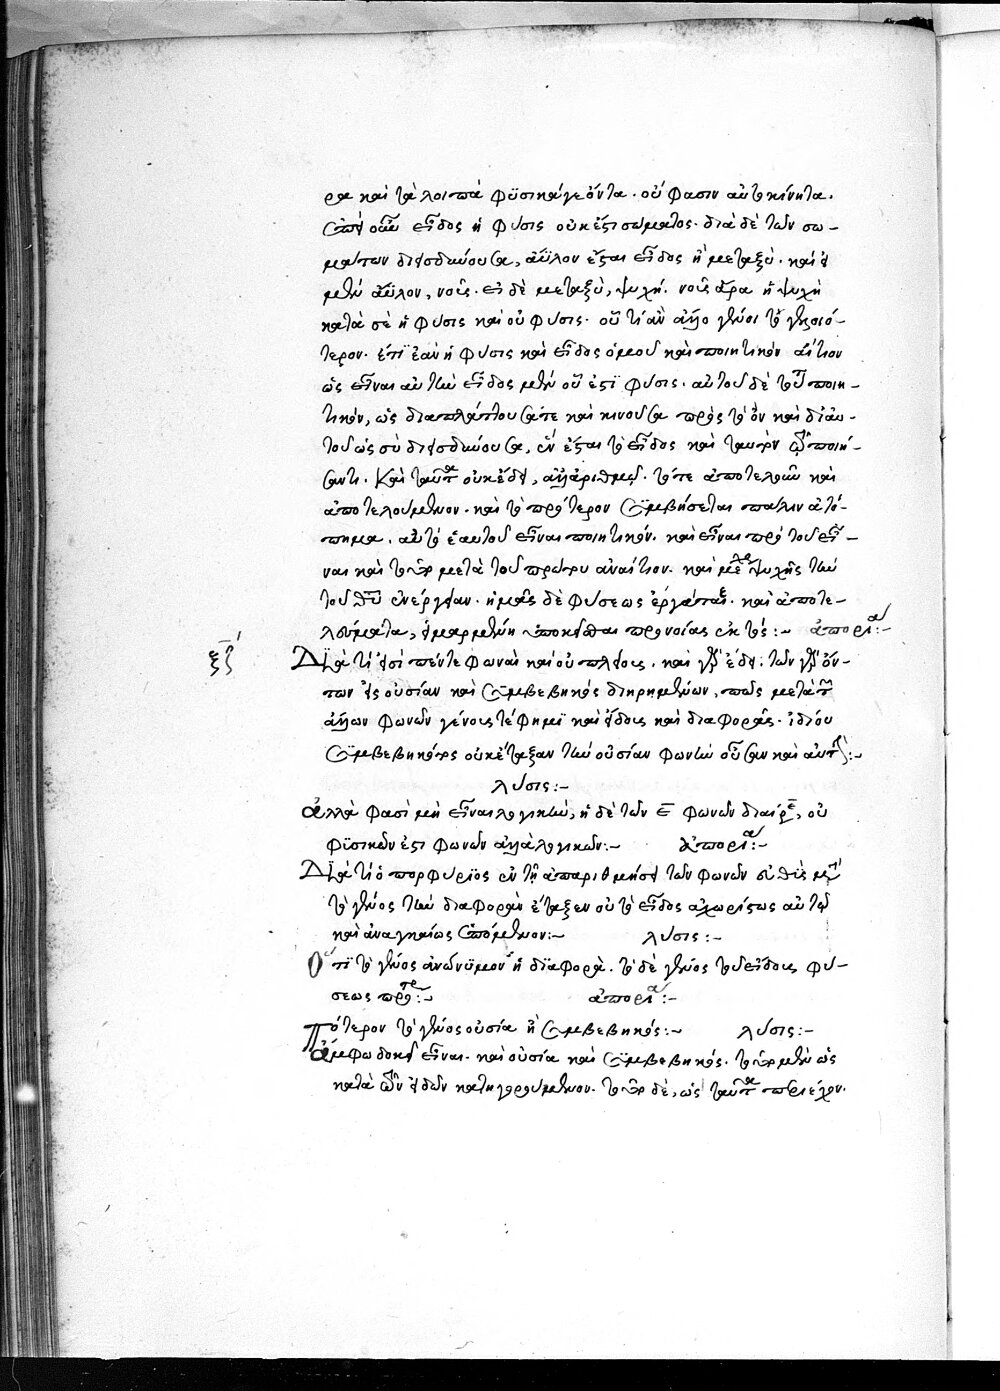 ρα καὶ τὰ λοιπὰ φϋσικά γε ὄντα. οὔ φασιν αὐτοκίνητα.
οὖν εἶδος ἡ φύσις οὐκ ἔστι σώματος. διὰ δὲ τῶν σω-
μάτων διαδύουσα, ἄϋλον ἔσται εἶδος ἢ μεταξύ. καὶ εἰ
μὲν ἄϋλον, νοῦς. εἰ δὲ μεταξὺ, ψυχή. νοῦς ἄρα ἢ ψυχὴ
κατὰ σὲ ἡ φύσις καὶ οὐ φύσις. οὗ τί ἂν ἄλλο γένοιτο γελοιό-
τερον. ἔτι ἐὰν ἡ φύσις καὶ εἶδος ὁμοῦ καὶ ποιητικὸν αἴτιον
ὡς εἶναι αὐτὴν εἶδος μὲν οὗ ἐστὶ φύσις. αὐτοῦ δὲ τούτου ποιη-
τικὸν, ὡς διαπλάττουσά τε καὶ κινοῦσα πρὸς τὸ ὂν καὶ δι' αὐ-
τοῦ ὡς σὺ διαδύουσα, ἓν ἔσται τὸ εἶδος καὶ ταυτὸν τῷ ποιή-
σαντι. καὶ ταῦτα οὐκ εἴδει, ἀλλ' ἀριθμῷ. τό τε ἀποτελοῦν καὶ
ἀποτελούμενον. καὶ τὸ πρότερον συμβήσεται πάλιν ἀτό-
πημα. αὐτὸ ἑαυτοῦ εἶναι ποιητικόν. καὶ εἶναι πρὸ τοῦ εἶ-
ναι καὶ τὸ μετὰ τοῦ πρώτου ἀναίτιον. καὶ ψυχῆς τὴν
τοῦ θεοῦ ἐνέργειαν. ἡμᾶς δὲ φύσεως ἐργάται. καὶ ἀποτε-
λούματα, εἱμαρμένην ὑποκεῖσθαι προνοίας ἐκτός:- ἀπορία:-
ξζ Διὰ τί εἰσὶ πέντε φωναὶ καὶ οὐ πλείους. καὶ τῶν ὄν-
των εἰς οὐσίαν καὶ συμβεβηκὸς διῃρημένων, πῶς μετὰ τῶν
ἄλλων φωνῶν γένους τέ φημι καὶ εἴδους καὶ διαφορᾶς. ἰδίου
συμβεβηκότος οὐκ ἔταξαν τὴν οὐσίαν φωνὴν οὖσαν καὶ αὐτήν:-
λύσις:-
Ἀλλὰ φασὶ μὴ εἶναι λογικὴν, ἡ δὲ τῶν ε φωνῶν διαίρεσις, οὐ
φϋσικῶν ἐστι φωνῶν ἀλλὰ λογικῶν:- ἀπορία:-
Διὰ τί ὁ πορφύριος ἐν τῇ ἀπαριθμήσει τῶν φωνῶν εὐθὺς μετὰ
τὸ γένος τὴν διαφορὰν ἔταξεν οὐ τὸ εἶδος ἀχωρίστως αὐτῷ
καὶ ἀναγκαίως ἑπόμενον:- λύσις:-
Ὅτι τὸ γένος ἀνώνυμον ἡ διαφορὰ. τὸ δὲ γένος τοῦ εἴδους φύ-
σεως πρότερον:- ἀπορία:-
Πότερον τὸ γένος οὐσία ἢ συμβεβηκός:- λύσις:-
Ἄμφω δοκεῖ εἶναι. καὶ οὐσία καὶ συμβεβηκός. τὸ μὲν ὡς
κατὰ τῶν εἰδῶν κατηγορούμενον. τὸ δὲ, ὡς ταῦτα περιέχον.